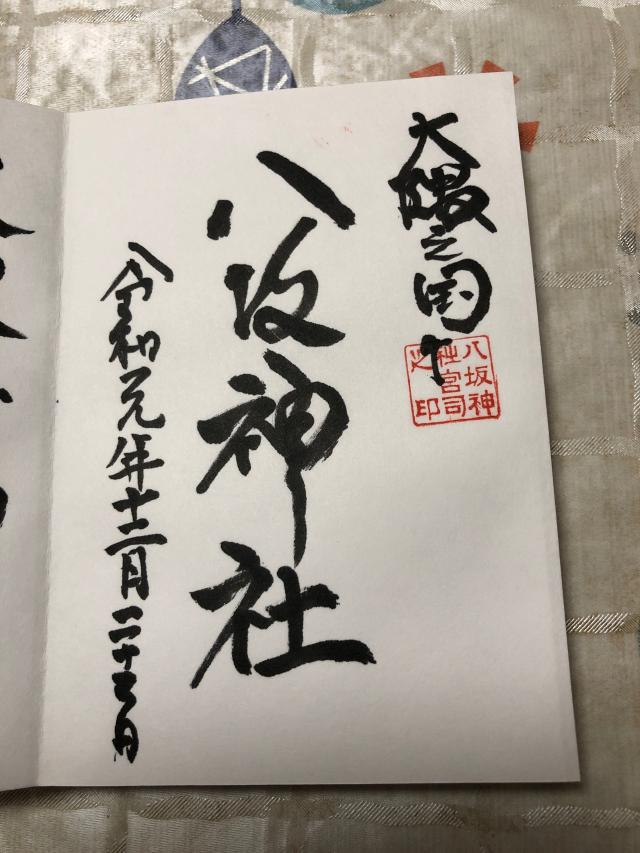 大隅之国
八坂神
社宮司
之印
八坂神社
令和元年十二月二十三日